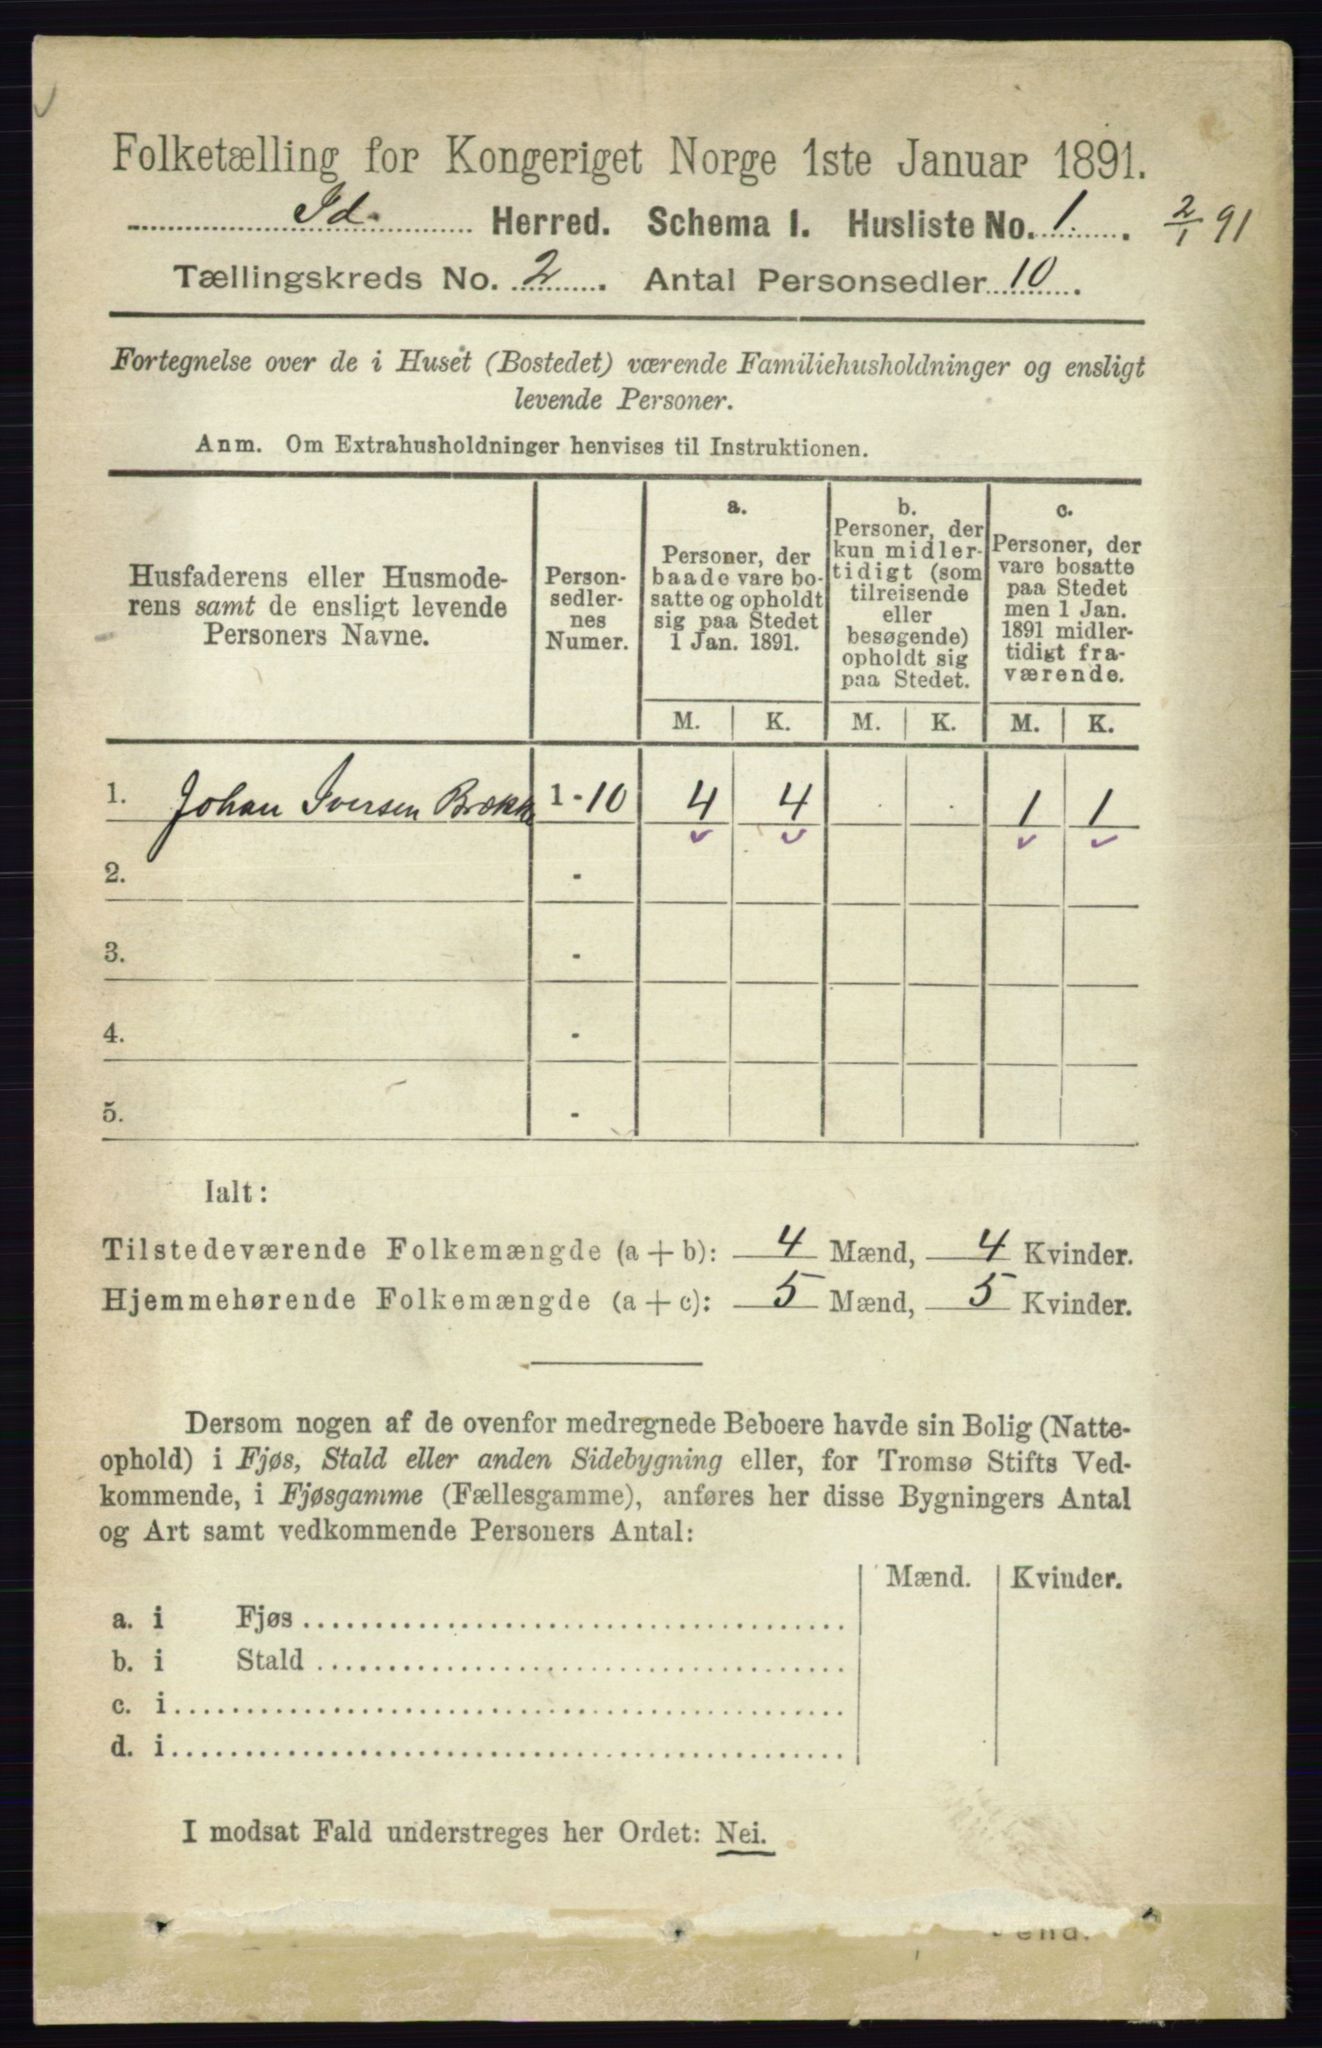 Folketælling for Kongeriget Norge 1ste Januar 1891.
Id. Herred. Schema I. Husliste No. 1. 2/1 91
Tællingskreds No. 2. Antal Personsedler 10.
Fortegnelse over de i Huset (Bostedet) værende Familiehusholdninger og ensligt
levende Personer.
Anm. Om Extrahusholdninger henvises til Instruktionen.
Husfaderens eller Husmode-
rens samt de ensligt levende
Personers Navne.
Person-
sedler-
nes
Numer.
a.
Personer, der
baade vare bo-
satte og opholdt
sig paa Stedet
1 Jan. 1891.
b.
Personer, der
kun midler-
tidigt (som
tilreisende
eller
besøgende)
opholdt sig
paa Stedet.
c.
Personer, der
vare bosatte
paa Stedet
men 1 Jan.
1891 midler-
tidigt fra-
værende.
M. K. M. K. M. K.
1. Johan Iversen Brække 1-10 4 4 . . 1 1
2. -
3. -
4. -
5. -
Ialt:
Tilstedeværende Folkemængde (a + b): 4 Mænd, 4 Kvinder.
Hjemmehørende Folkemængde (a + c): 5 Mænd, 5 Kvinder.
Dersom nogen af de ovenfor medregnede Beboere havde sin Bolig (Natte-
ophold) i Fjøs, Stald eller anden Sidebygning eller, for Tromsø Stifts Ved-
kommende, i Fjøsgamme (Fællesgamme), anføres her disse Bygningers Antal
og Art samt vedkommende Personers Antal:
Mænd. Kvinder.
a. i Fjøs
b. i Stald
c. i
d. i
I modsat Fald understreges her Ordet: Nei.